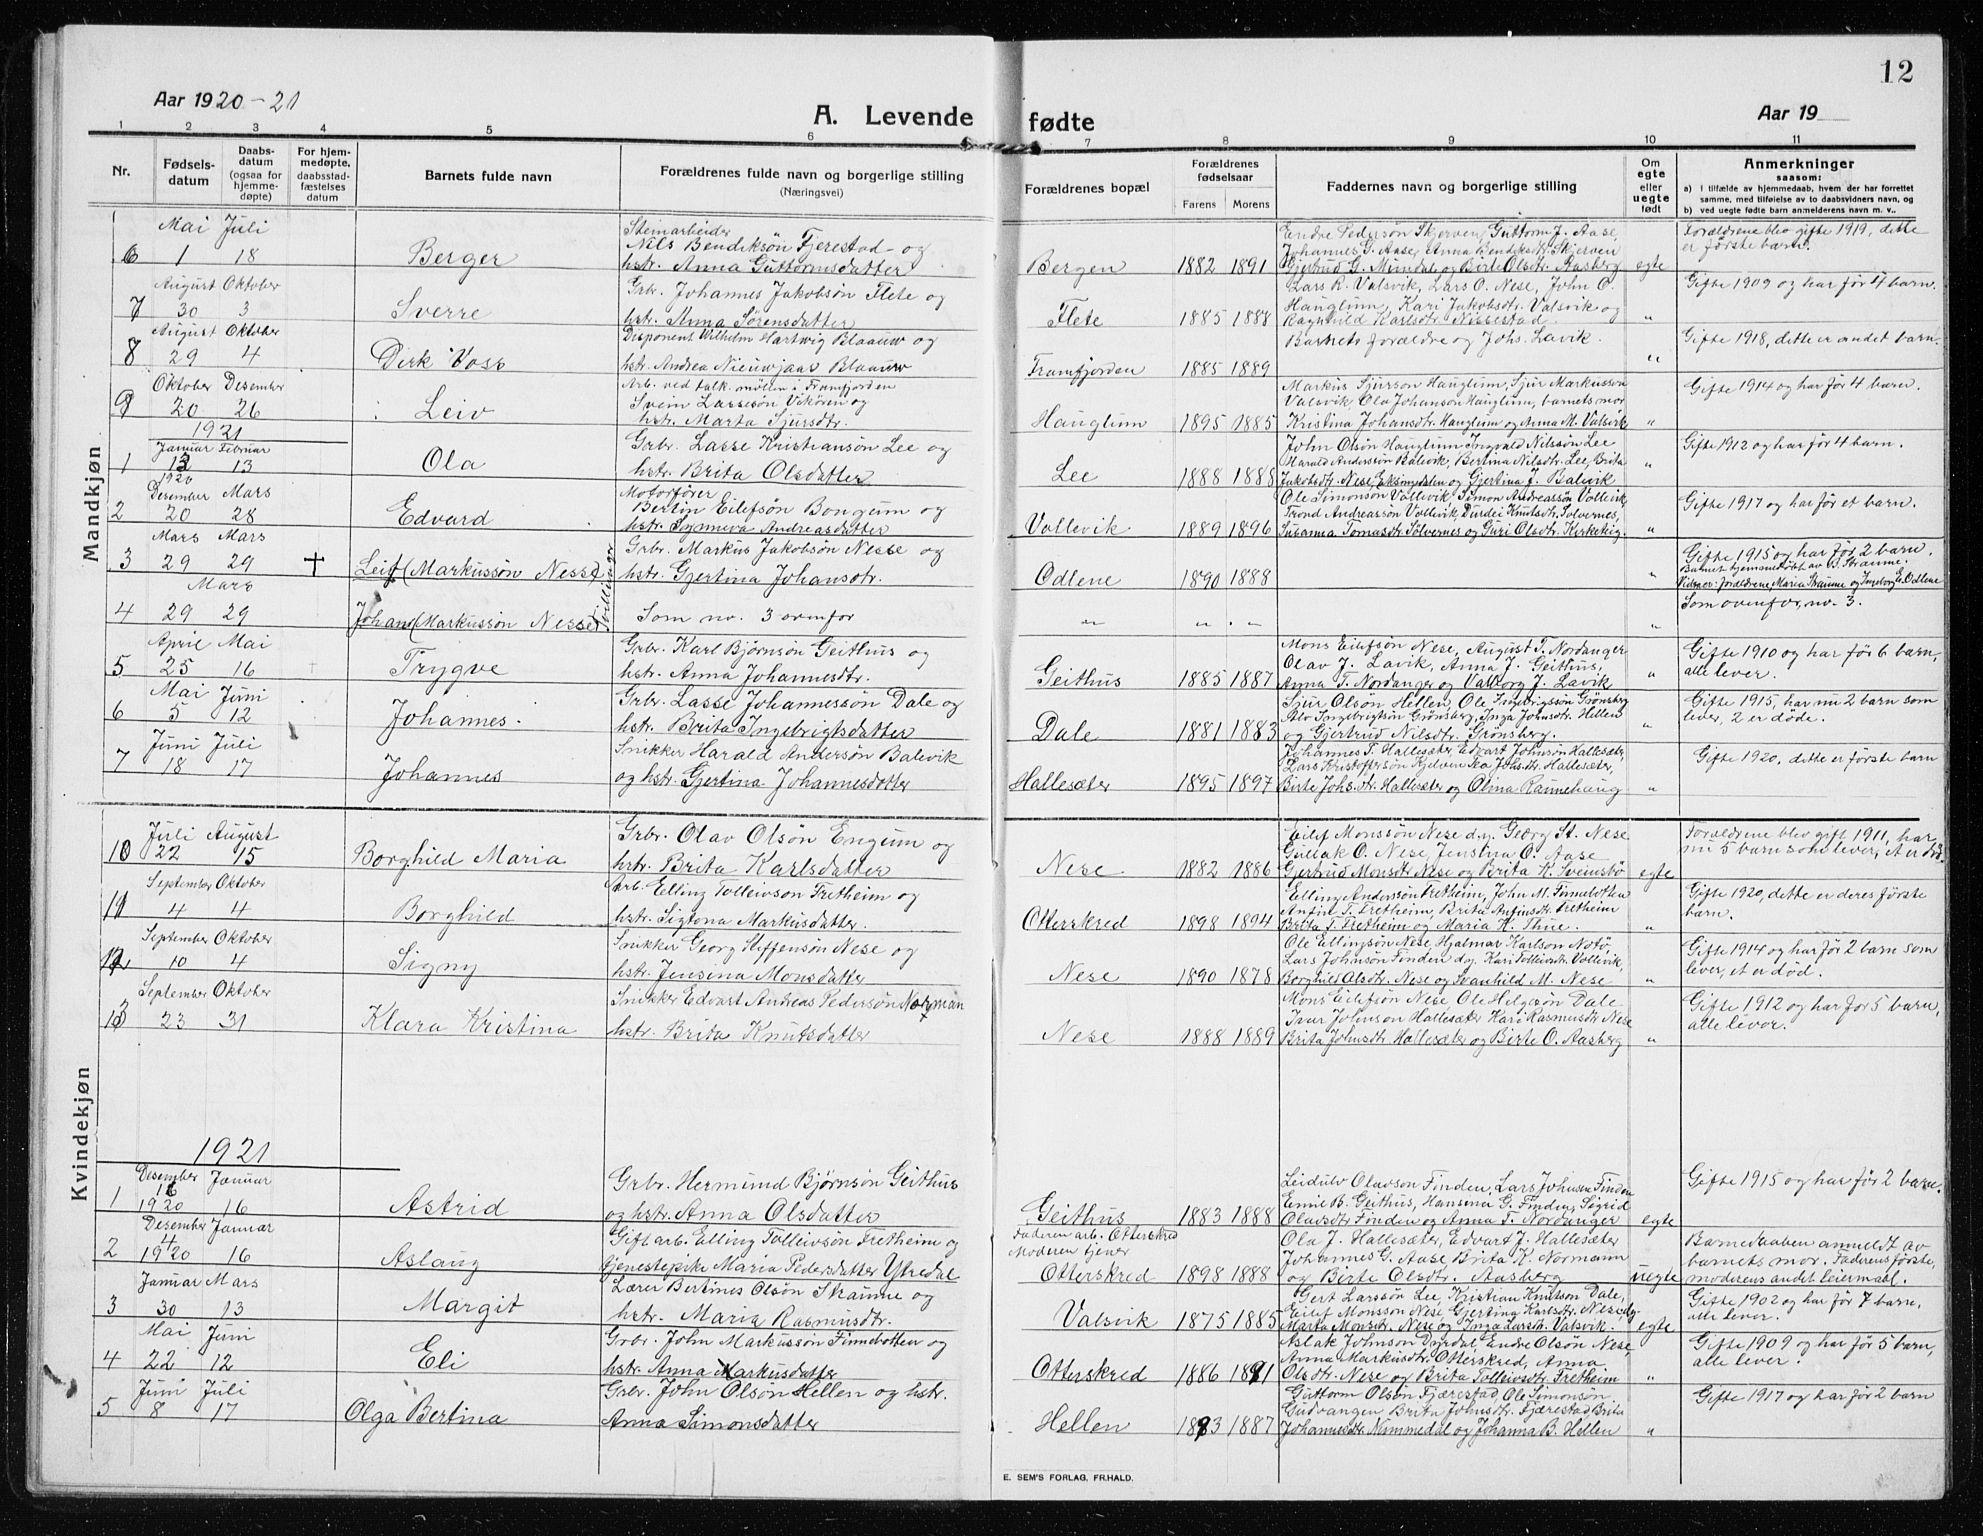 12
Aar 1920-21
A. Levende fødte
Aar 19
1 2 3 4 5 6 7 8 9 10 11
Nr.
Fødsels-
datum
Daabs-
datum
(ogsaa for
hjemme-
døpte)
For hjem-
medøpte,
daabsstad-
fæstelses
datum
Barnets fulde navn
Forældrenes fulde navn og borgerlige stilling
(Næringsvei)
Forældrenes bopæl
Forældrenes
fødselsaar
Farens Morens
Faddernes navn og borgerlige stilling
Om
egte
eller
uegte
født
Anmerkninger
saasom:
a) I tilfælde av hjemmedaab, hvem der har forrettet
samme, med tilføielse av to daabsvidners navn, og
b) ved uegte fødte barn anmelderens navn m. v..
Mandkjøn
Mai Juli
6 1 18 Berger
Steinarbeider
Nils Bendiksøn Fjerestad og
hstr. Anna Guttormsdatter
Bergen 1882 1891
Endre Pederson Skjerven, Guttorm J. Aase,
Johannes G. Aase, Anna Bendiksdtr. Skjerven
Gjertrud G. Mundal og Birte Olsdtr. Aasberg
egte
Forældrene blev gifte 1919, dette
er første barn.
August Oktober
7 30 3 Sverre
Grbr. Johannes Jakobsøn Flete og
hstr. Anna Sørensdatter
Flete 1885 1888
Lars R. Valsvik, Lars O. Nese, John O.
Hauglum, Kari Jakobsdtr. Valsvik og
Raghild Karlsdtr. Nissestad.
"
Gifte 1909 og har før 4 barn.
August Oktober
8 29 4 Dirk Voss
Disponent Wilhelm Hartwig Blaauw og
hstr. Andrea Nieuwjaas Blaauw
Framfjorden 1885 1889
Barnets forældre og Johs. Lavik.
"
Gifte 1918, dette er andet barn.
Oktober Desember
9 20 26 Leiv
Arb. ved talk. møllen i Framfjorden
Svein Lassesøn Vikøren og
hstr. Marta Sjursdtr.
Hauglum 1895 1885
Markus Sjurson Hauglum, Sjur Markusson
Valsvik, Ola Johanson Hauglum, barnets mor
Kristina Johansdtr. Hauglum og Anna M. Valsvik
"
Gifte 1914 og har før 4 barn.
1921
Januar Februar
1 13 13 Ola
Grbr. Lasse Kristiansøn Lee og
hstr. Brita Olsdatter
Lee 1888 1888
John Olsøn Hauglum, Ingvald Nilssøn Lee
Harald Anderssøn Balevik, Bertina Nilsdtr. Lee, Brita
Jakobsdtr. Nese, Eksingdalen og Gjertina J. Balevik
"
Gifte 1912 og har før 4 barn.
1920
Desember Mars
2 20 28 Edvard
Motorfører
Bertin Eilefsøn Bongum og
hstr. Synneva Andreasdatter
Vollevik 1889 1896
Ole Simonsøn Vollevik, Simon Andreassøn Vollevik,
Trond Andreassøn Vollevik, Durdei Knutsdtr. Solvernes,
Susanna Tomasdtr. Solvernes og Guri Olsdtr. Kirkekig.
"
Gifte 1917 og har før et barn.
Mars Mars
3 29 29 + Leif (Markussøn Nesse)
Grbr. Markus Jakobsøn Nesse og
hstr. Gjertina Johansdtr.
Odlene 1890 1888
"
Gifte 1915 og har før 2 barn.
Barnet hjemmedøbt av B. Straume.
Vidner: forældrene, Maria Straume og Ingeborg E. Odlene
Mars
4 29 29 Johan (Markussøn Nesse)
Tvillinger
Som nv. 3 ovenfor
" " . "
"
Som ovenfor, nv. 3.
April Mai
5 25 16 Trygve
Grbr. Karl Bjørnsøn Geithus og
hstr. Anna Johannesdtr.
Geithus 1885 1887
Mons Eilefsøn Nese, August T. Nordanger
Olav J. Lavik, Anna J. Geithus,
Anna T. Nordanger og Valborg J. Lavik
"
Gifte 1910 og har før 6 barn,
alle lever.
Mai Juni
6 5 12 Johannes.
Grbr. Lasse Johannessøn Dale og
hstr. Brita Ingebrigtsdatter
Dale 1881 1883
Sjur Olsøn Hellen, Ole Ingebrigtsøn Grønsberg
Alv Ingebrigtsøn Grønsberg, Inga Johnsdtr. Hellen
og Gjertrud Nilsdtr. Grønsberg.
"
Gifte 1915, har nu 2 barn som
lever, 2 er døde.
Juni Juli
7 18 17 Johannes
Snikker Harald Andersøn Balevik
og hstr. Gjertina Johannesdotter
Hallesæter 1895 1897
Johannes T. Hallesæter, Edvart Johnsøn Hallesæter,
Lars Kristoffersøn Kjelven, Ka Johs.dtr. Hallesæter,
Birte Johs.dtr. Hallesæter og Olma Rannehaug
"
Gifte 1920, dette er første barn
Kvindekjøn
Juli August
10 22 15 Borghild Maria
Grbr. Olav Olsøn Engum og
hstr. Brita Karlsdatter
Nese 1882 1886
Eilef Monssøn Nese d.y. Georg St. Nese
Gullak O. Nese, Jenstina O. Aase
Gjertrud Monsdtr. Nese og Brita K. Sveinsbø
egte
Forældrene blev gift 1911, har
nu 5 barn som lever, et er død.
September Oktober
11 4 4 Borghild
Arb. Elling Tolleivson Fretheim og
hstr. Sigtona Markusdatter.
Otterskred 1898 1894
Elling Anderssøn Fretheim, John M. Finneloften
Anfin T. Fretheim, Brita Anfinsdtr. Fretheim
Brita T. Fretheim og Maria K. Thue.
"
Gifte 1920, dette er deres første
barn.
September Oktober
12 10 4 Signy
Snikker Georg Steffensøn Nese og
hstr. Jensena Monsdatter
Nese 1890 1878
Ole Ellingsøn Nese, Hjalmar Karlson Notø,
Lars Johnsøn Finden d.y. Kari Tolleivsdtr. Vollevik,
Borghild Olsdtr. Nese og Svanhild M. Nese
"
Gifte 1914 og har før 2 barn som
lever, et er død.
September Oktober
13 23 31 Klara Kristina
Snikker Edvart Andreas Pedersøn Norman
hstr. Brita Knutsdatter
Nese 1888 1889
Mons Eilefsøn Nese, Ole Helgesøn Dale
Ivar Johnson Hallesæter, Kari Rasmusdtr. Nese
Brita Johnsdtr. Hallesæter og Birte O. Aasberg
"
Gifte 1912 og har før 5 barn,
alle lever.
1921
Desember Januar
1 16 1920 16 Astrid
Grbr. Hermund Bjørnsøn Geithus
og hstr. Anna Olsdatter
Geithus 1883 1888
Leidulv Olavson Finden, Lars Johnsen Finden
Emil B. Geithus, Hansina G. Finden, Sigrid
Olavsdtr. Finden og Anna T. Nordanger
egte
Gifte 1915 og har før 2 barn.
Desember Januar
2 4 1920 16 Aslaug
Gift arb. Elling Tolleivsøn Fretheim og
tjenestepike Maria Pedersdatter Ytredal
Faderen arb. Otterskred
Moderen tjener
Otterskred 1898 1888
Ola J. Hallesæter, Edvart J. Hallesæter
Johannes G. Aase, Brita K. Normann
og Birte Olsdtr. Aasberg
uegte
Barnedaaben anmeldt av
barnets mor. Faderens første,
moderens andet leiermaal.
Januar Mars
3 30 13 Margit
Lærer Bertines Olsøn Straume og
hstr. Maria Rasmusdtr.
Valsvik 1875 1885
Gert Larssøn Lee, Kristian Knutson Dale,
Eilef Monsson Nese, Gjertina Karlsdtr. Nese, dy.
Marta Monsdtr. Nese og Inga Larsdtr. Valsvik.
egte
Gifte 1902 og har før 7 barn,
alle lever.
Mai Juni
4 22 12 Eli
Grbr. John Markusson Finneloften og
hstr. Anna Markusdatter
Otterskred 1886 1891
Aslak Johnson Dyrdal, Endre Olsøn Nese,
Anna Markusdtr. Otterskred, Anna
Olsdtr. Nese og Brita Tolleivsdtr. Fretheim
"
Gifte 1909 og har før 5 barn,
alle lever.
Juni Juli
5 8 17 Olga Bertina
Grbr. John Olsøn Hellen og hstr.
Anna Simonsdatter
Hellen 1893 1887
Guttorm Olsøn Fjærestad, Ole Simonsøn
Gudvangen, Brita Johnsdtr. Fjærestad, Brita
Johannesdtr. Nummedal og Johanna B. Hellen
"
Gifte 1917 og har før 2 barn
E. SEM'S FORLAG, FR.HALD.